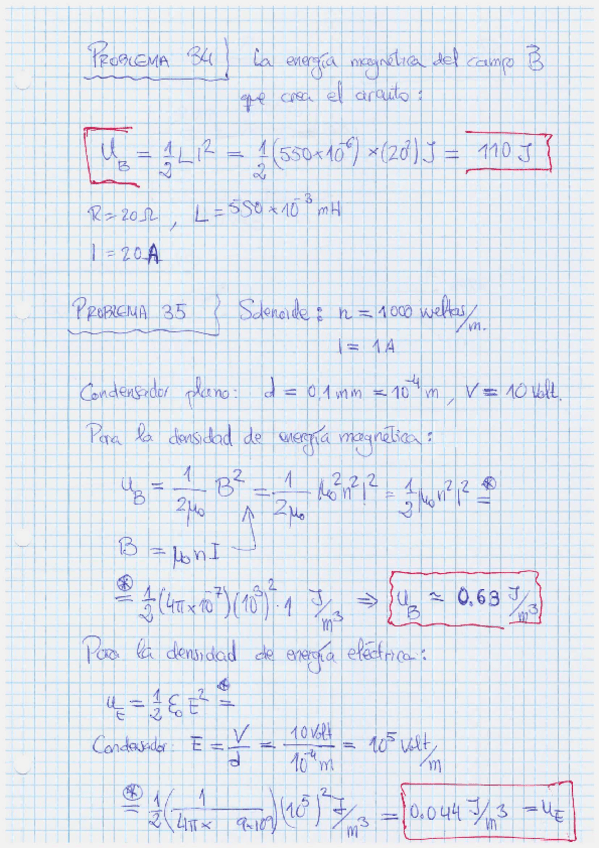 PROBLEMA 34 } La energía magnética del campo B⃗
que crea el circuito:
U_B = 1/2 L I² = 1/2 (550×10⁻⁶) × (20²) J = 110 J
R = 20 Ω , L = 550 × 10⁻³ mH
I = 20 A
PROBLEMA 35 } Solenoide: n = 1000 vueltas/m.
I = 1 A
Condensador plano: d = 0,1 mm = 10⁻⁴ m, V = 10 Volt.
Para la densidad de energía magnética:
u_B = 1/2μ₀ B² = 1/2μ₀ μ₀²n²I² = 1/2 μ₀n²I² =*
B = μ₀nI
*= 1/2 (4π×10⁻⁷)(10³)²·1 J/m³ ⇒ u_B ≈ 0.63 J/m³
Para la densidad de energía eléctrica:
u_E = 1/2 ε₀E² =*
Condensador: E = V/d = 10 Volt/10⁻⁴ m = 10⁵ Volt/m
*= 1/2 (1/4π× 9×10⁹)(10⁵)² J/m³ = 0.044 J/m³ = u_E